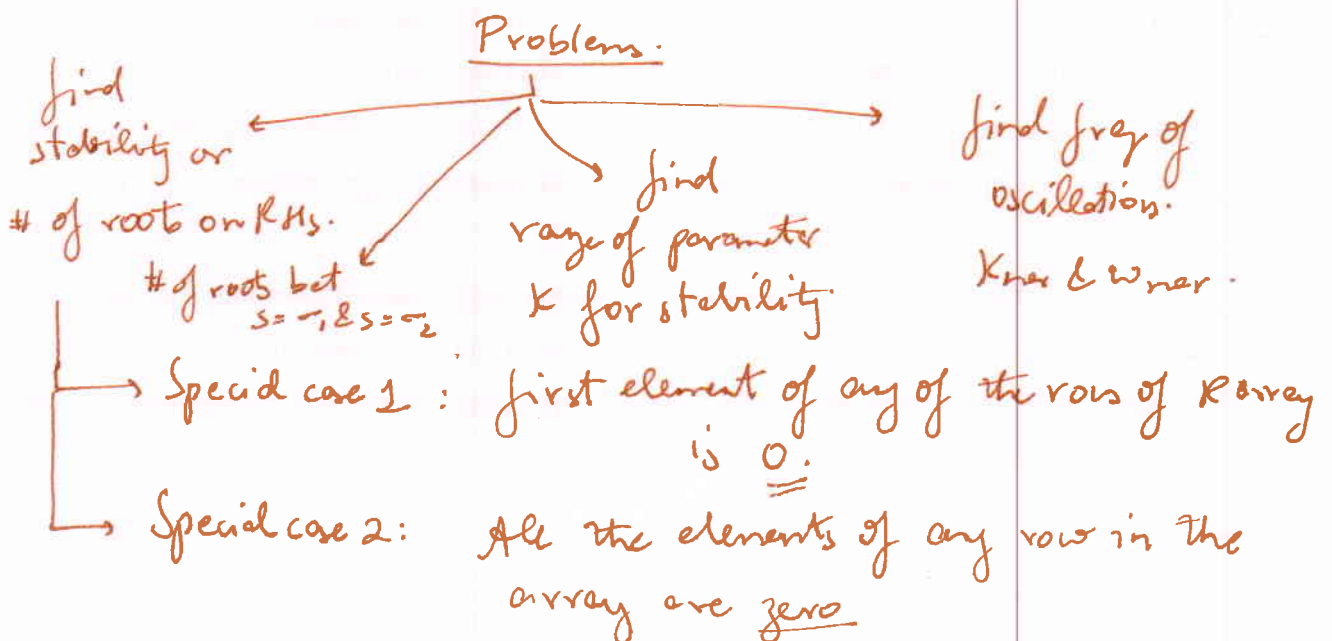 Problems.
find
stability or
# of roots on RHS.
# of roots bet
s = σ₁ & s = σ₂
find
range of parameter
K for stability.
find freq of
oscillation.
Kmar & ωmar.
Special case 1 : first element of any of the rows of R array
is 0.
Special case 2 : All the elements of any row in the
array are zero